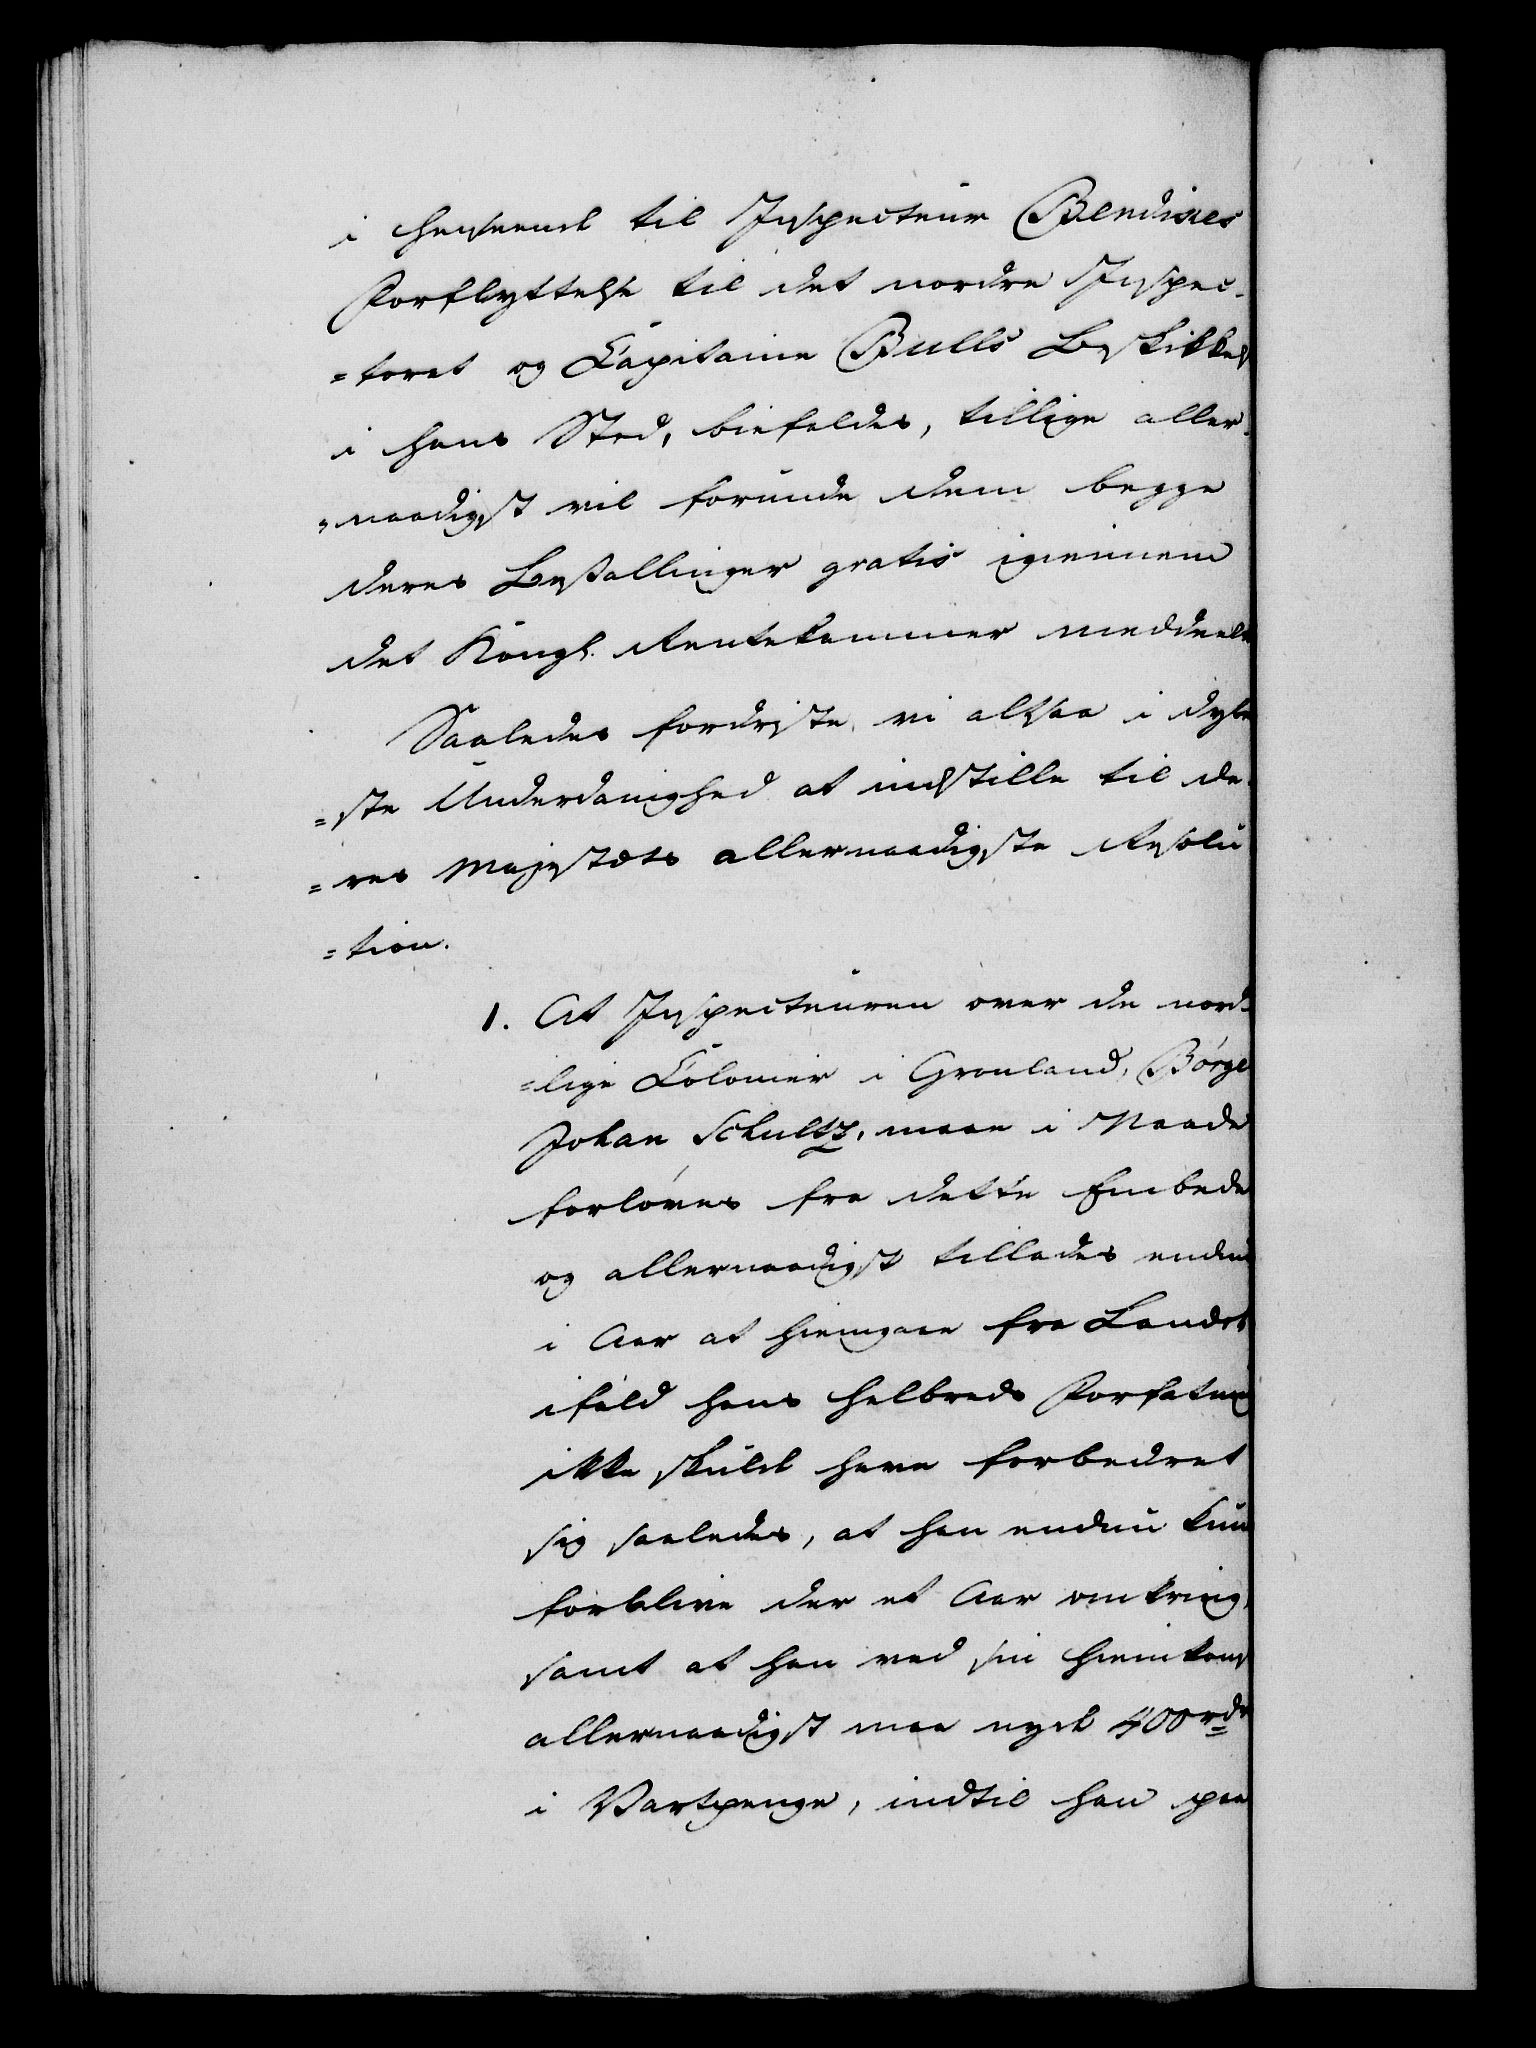 i Henseende til Inspecteur Bendixes
Forflyttelse til det nordre Inspec-
=torat og Capitaine Bulls Beskikkels
i hans Sted, biefaldes, tillige aller-
=naadigst vil forunde dem begge
deres Bestallinger gratis igiennem
det Kongl. Rentekammer meddeelte
Saaledes fordriste vi altsaa i dybe
=ste Underdanighed at indstille til De-
=res Majestæts allernaadigste Resolu
=tion.
1. At Inspecteuren over de nord-
=lige Colonier i Grønland, Börge
Johan Schultz, maae i Naade
forløves fra dette Embede
og allernaadigst tillades endnu
i Aar at hiemgaae fra Landet
ifald hans Helbreds Forfatning
ikke skulde have forbedret
sig saaledes, at han endnu kun
forblive der et Aar omkring,
samt at han ved sin Hiemkomst
allernaadigst maa nyde 400 rdr
i Vartpenge, indtil han paa